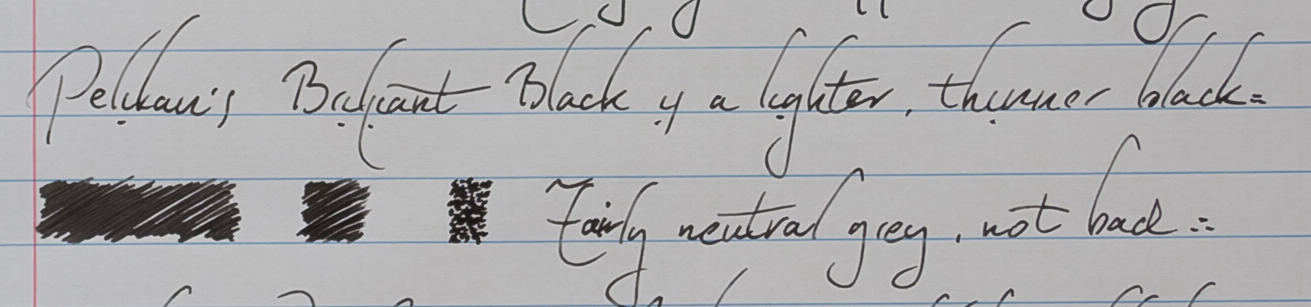 Pelikan's Brilliant Black is a lighter, thinner black=
Fairly neutral grey, not bad =